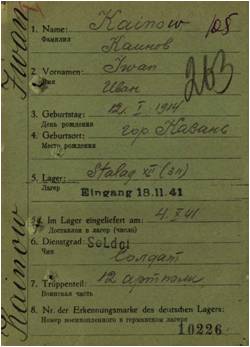 1. Name: Kainow 105
Фамилия Каинов
2. Vornamen: Iwan
Имя Иван
263
3. Geburtstag: 12. I. 1914
День рождения
4. Geburtsort: гор. Казань
Место рождения
5. Lager: Stalag XI (311)
Лагерь
Eingang 18.11.41
Im Lager eingeliefert am: 4. X 41
Доставлен в лагерь (число)
6. Dienstgrad: Soldat
Чин Солдат
7. Truppenteil: 12 артполк
Воинская часть
8. Nr. der Erkennungsmarke des deutschen Lagers:
Номер военнопленного в германском лагере
10226
Kainow Iwan